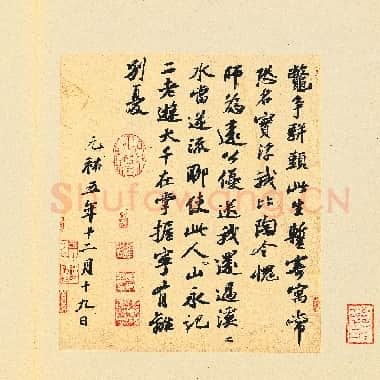 鼈爭駢頭此生暫寄寓常
恐名實浮我比陶令愧
師為遠公優送我還過溪〻
水當逆流聊使此人山永記
二老遊大千在掌握寧有離
別憂
元祐五年十二月十九日
Shufawang.CN